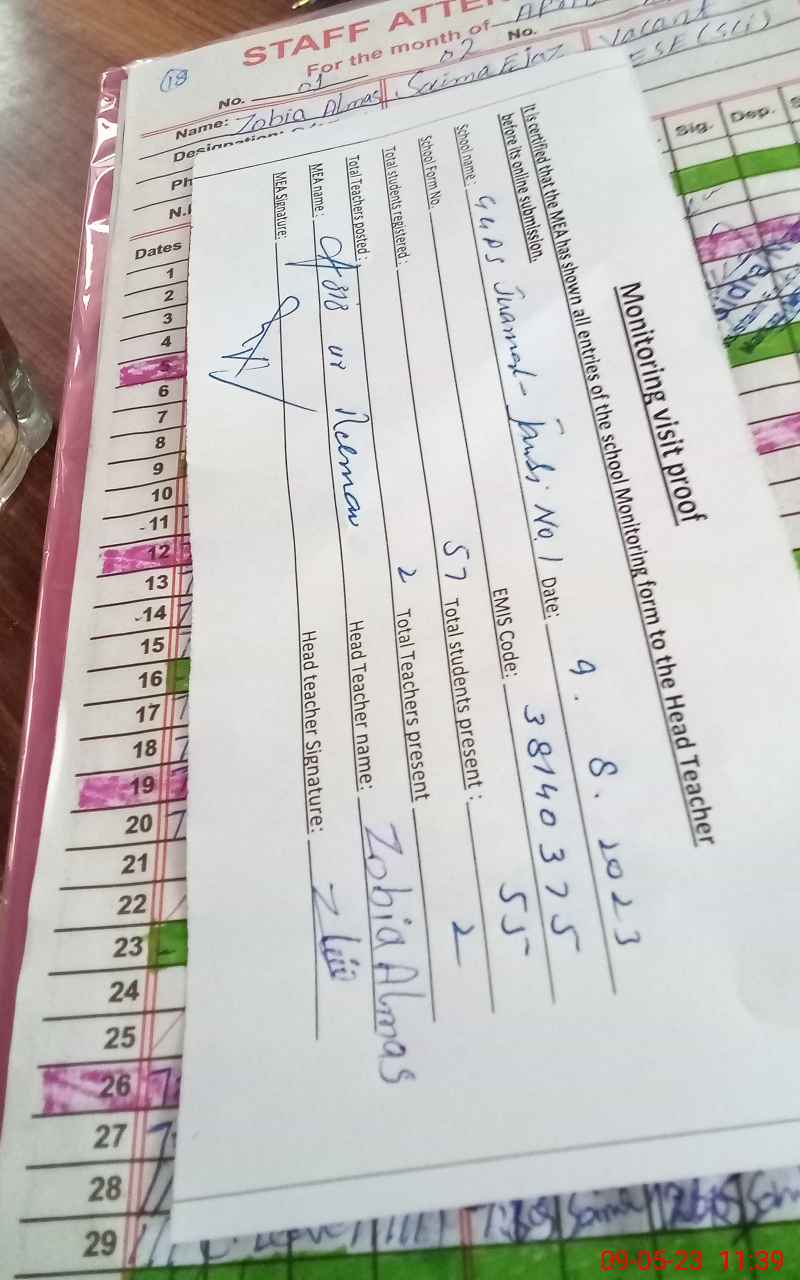 18
STAFF ATTE
For the month of
No. 01
02
No.
Name: Zobia Almas, Saima Ejaz
Vacant
ESE (Sci)
Designation:
Ph
N.I
Sig. Dep. S
Dates
1
2
3
4
5
6
7
8
9
10
11
12
13
14
15
16
17
18
19
20
21
22
23
24
25
26
27
28
29
Monitoring visit proof
It is certified that the MEA has shown all entries of the school Monitoring form to the Head Teacher
before its online submission.
School name: No. 1 Date: 9.8.2023
School Form No. EMIS Code: 38140375
Total students registered: 57 Total students present: 55
Total Teachers posted: 2 Total Teachers present 2
MEA name: ur Rehman Head Teacher name: Zobia Almas
MEA Signature: Head teacher Signature:
09-05-23 11:39